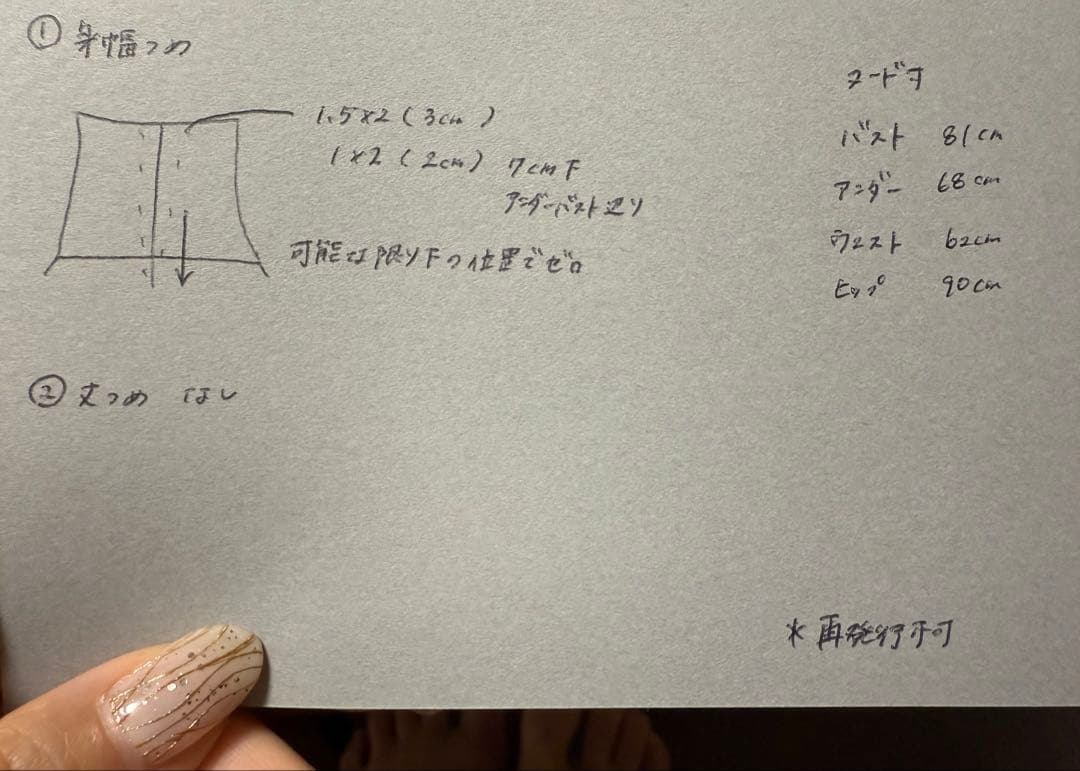 ① 身幅つめ
1.5×2(3cm)
1×2(2cm) 7cm下
アンダーバスト辺り
可能な限り下の位置でゼロ
② 丈つめ なし
ヌード寸
バスト 81cm
アンダー 68cm
ウエスト 62cm
ヒップ 90cm
*再発行不可